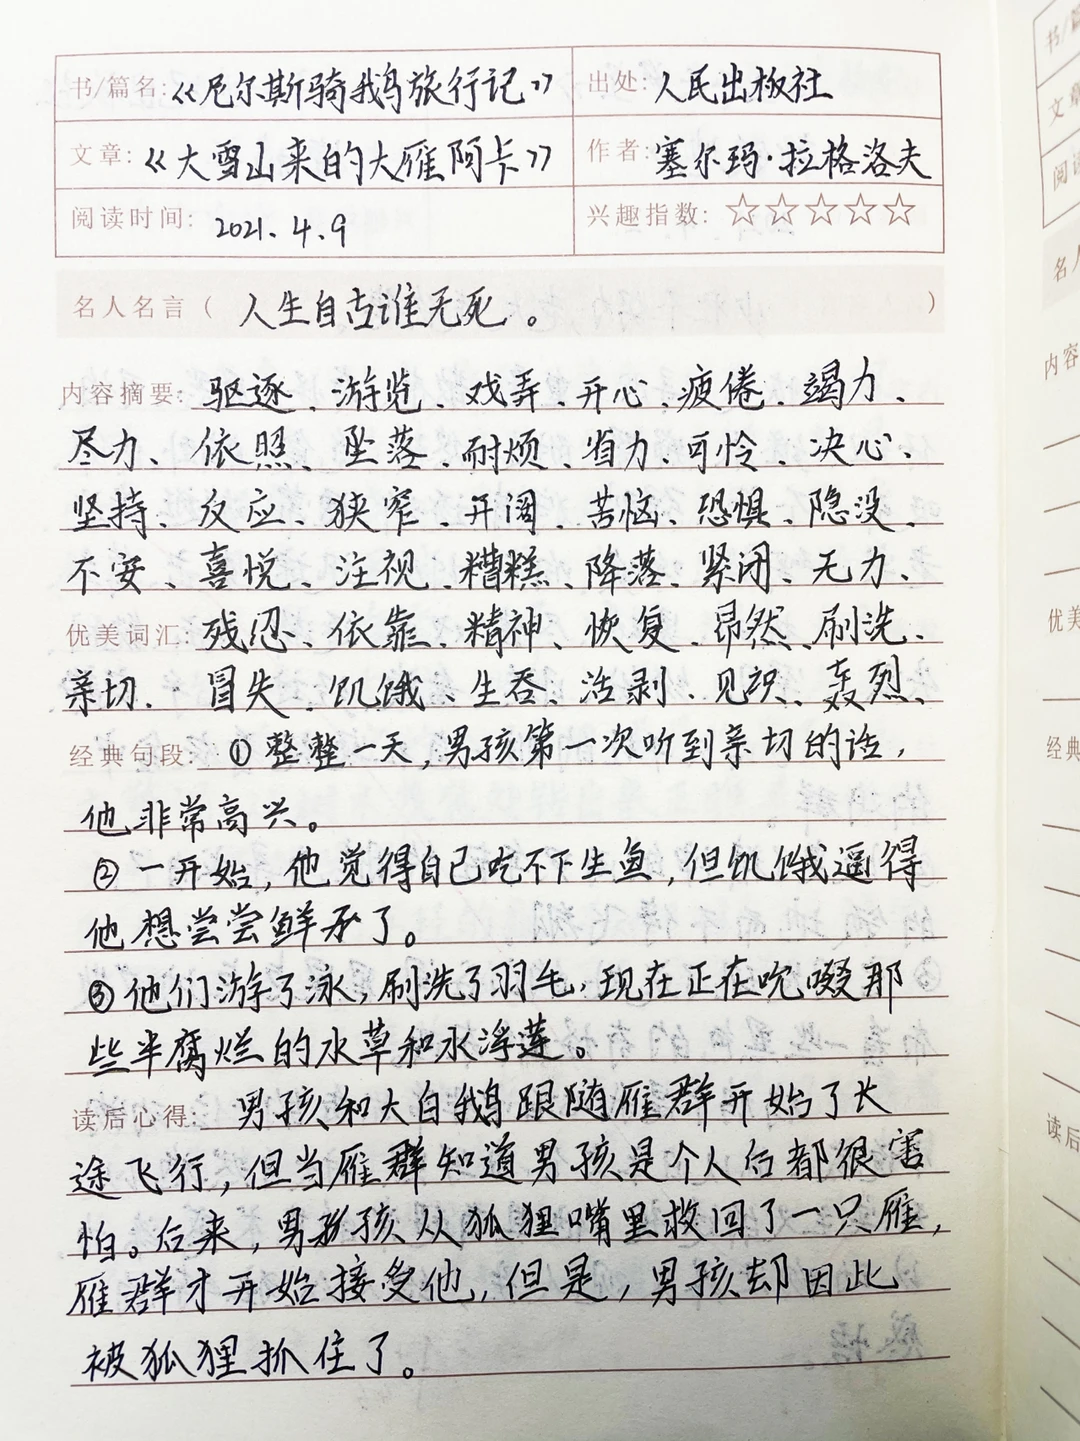 书/篇名:《尼尔斯骑鹅旅行记》 出处:人民出板社
文章:《大雪山来的大雁阿卡》 作者:塞尔玛·拉格洛夫
阅读时间: 2021.4.9 兴趣指数:☆☆☆☆☆
名人名言( 人生自古谁无死。 )
内容摘要: 驱逐、游览、戏弄、开心、疲倦、竭力、
尽力、依照、坠落、耐烦、省力、可怜、决心、
坚持、反应、狭窄、开阔、苦恼、恐惧、隐没、
不安、喜悦、注视、糟糕、降落、紧闭、无力、
优美词汇: 残忍、依靠、精神、恢复、昂然、刷洗、
亲切、冒失、饥饿、生吞、活剥、见识、轰烈、
经典句段: ①整整一天,男孩第一次听到亲切的话,
他非常高兴。
②一开始,他觉得自己吃不下生鱼,但饥饿逼得
他想尝尝鲜了。
③他们游了泳,刷洗了羽毛,现在正在吮啜那
些半腐烂的水草和水浮莲。
读后心得: 男孩和大白鹅跟随雁群开始了长
途飞行,但当雁群知道男孩是个人后都很害
怕。后来,男孩从狐狸嘴里救回了一只雁,
雁群才开始接受他,但是,男孩却因此
被狐狸抓住了。
书/篇
文章
阅读
名人
内容
优美
经典
读后